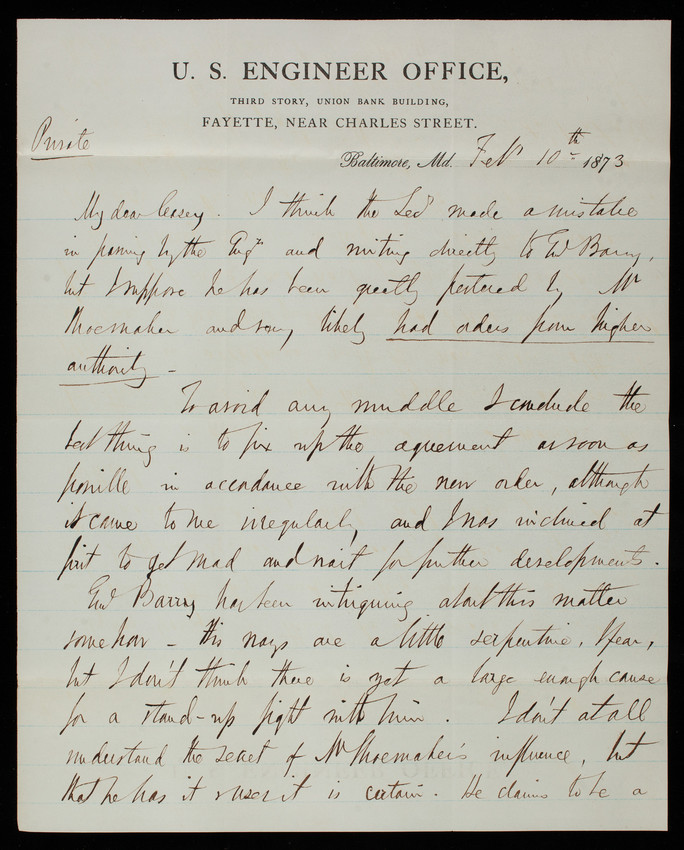 U. S. ENGINEER OFFICE,
THIRD STORY, UNION BANK BUILDING,
FAYETTE, NEAR CHARLES STREET.
Private
Baltimore, Md. Feb 10th 1873
My dear Casey. I think the Secy made a mistake
in passing by the Engrs and writing directly to Genl Barry,
but I suppose he has been greatly pestered by Mr
Shoemaker and very likely had orders from higher
authority –
To avoid any muddle I conclude the
best thing is to fix up the agreement as soon as
possible in accordance with the new order, although
it came to me irregularly, and I was inclined at
first to get mad and wait for further developments.
Genl Barry has been intriguing about this matter
somehow – his ways are a little serpentine, I fear,
but I don't think there is yet a large enough cause
for a stand-up fight with him. I don't at all
understand the secret of Mr Shoemaker's influence, but
that he has it & uses it is certain. He claims to be a